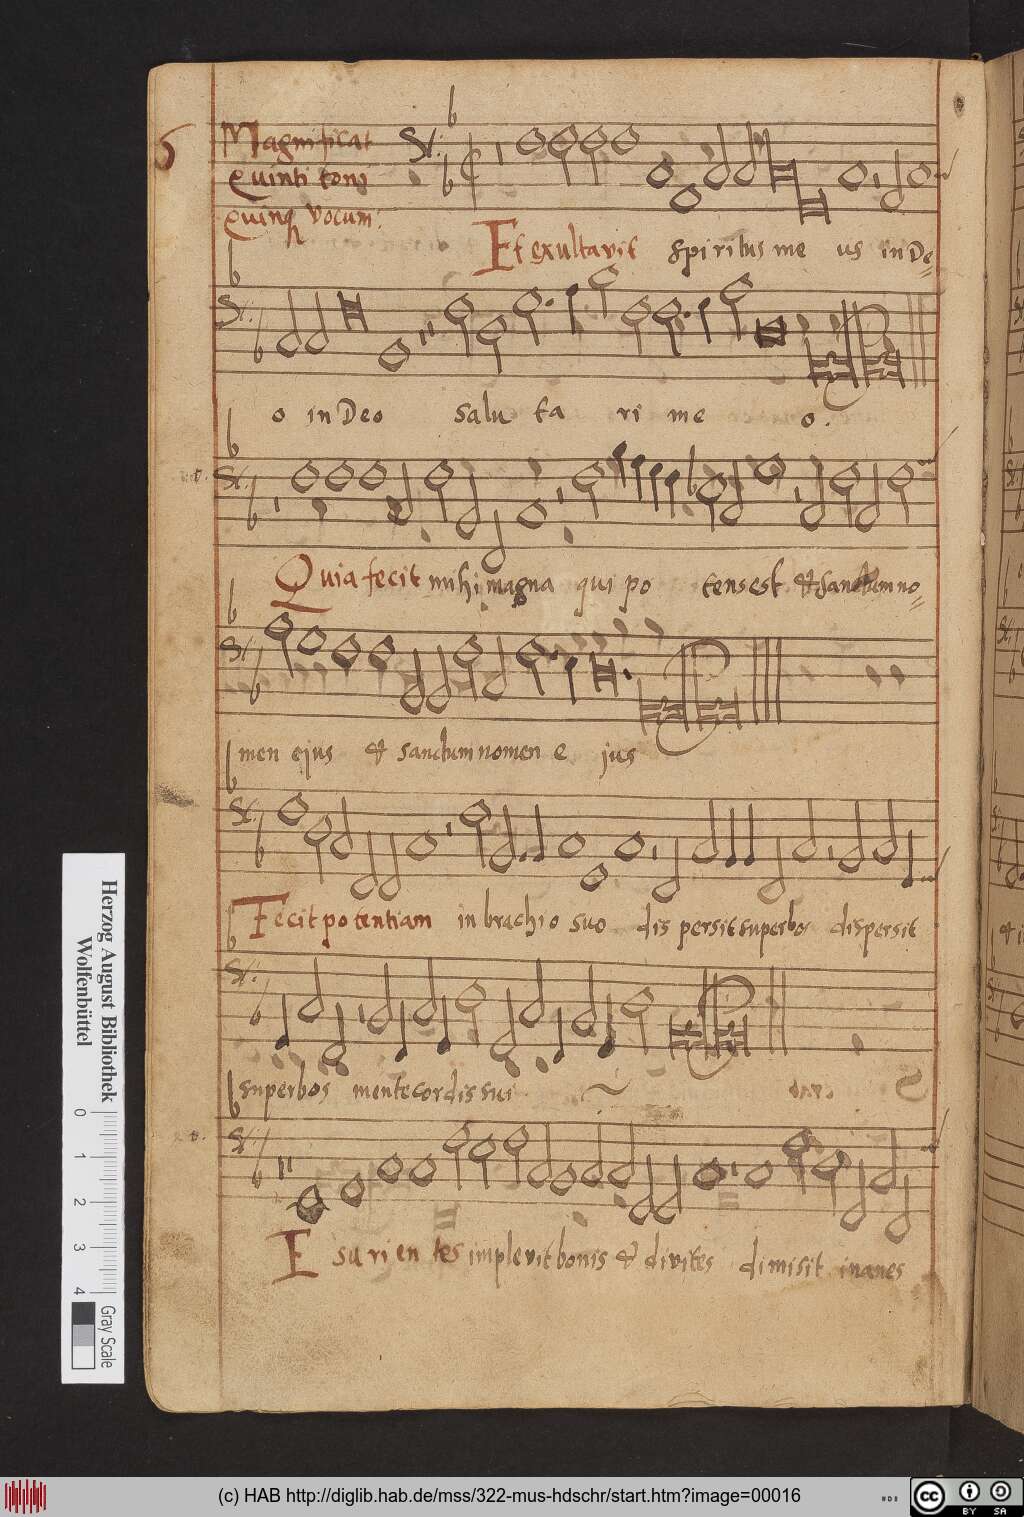 5
Magnificat
Quinti toni
Quinq vocum:
Et exultavit spiritus me us in De=
o in Deo salu ta ri me o.
Quia fecit mihi magna qui po tens est & sanctum no=
men ejus & sanctum nomen e jus
Fecit potentiam in brachio suo dis persit superbos dispersit
superbos mente cordis sui
E su ri en tes implevit bonis & divites dimisit inanes
Herzog August Bibliothek
Wolfenbüttel
0 1 2 3 4 Gray Scale
(c) HAB http://diglib.hab.de/mss/322-mus-hdschr/start.htm?image=00016
cc BY SA